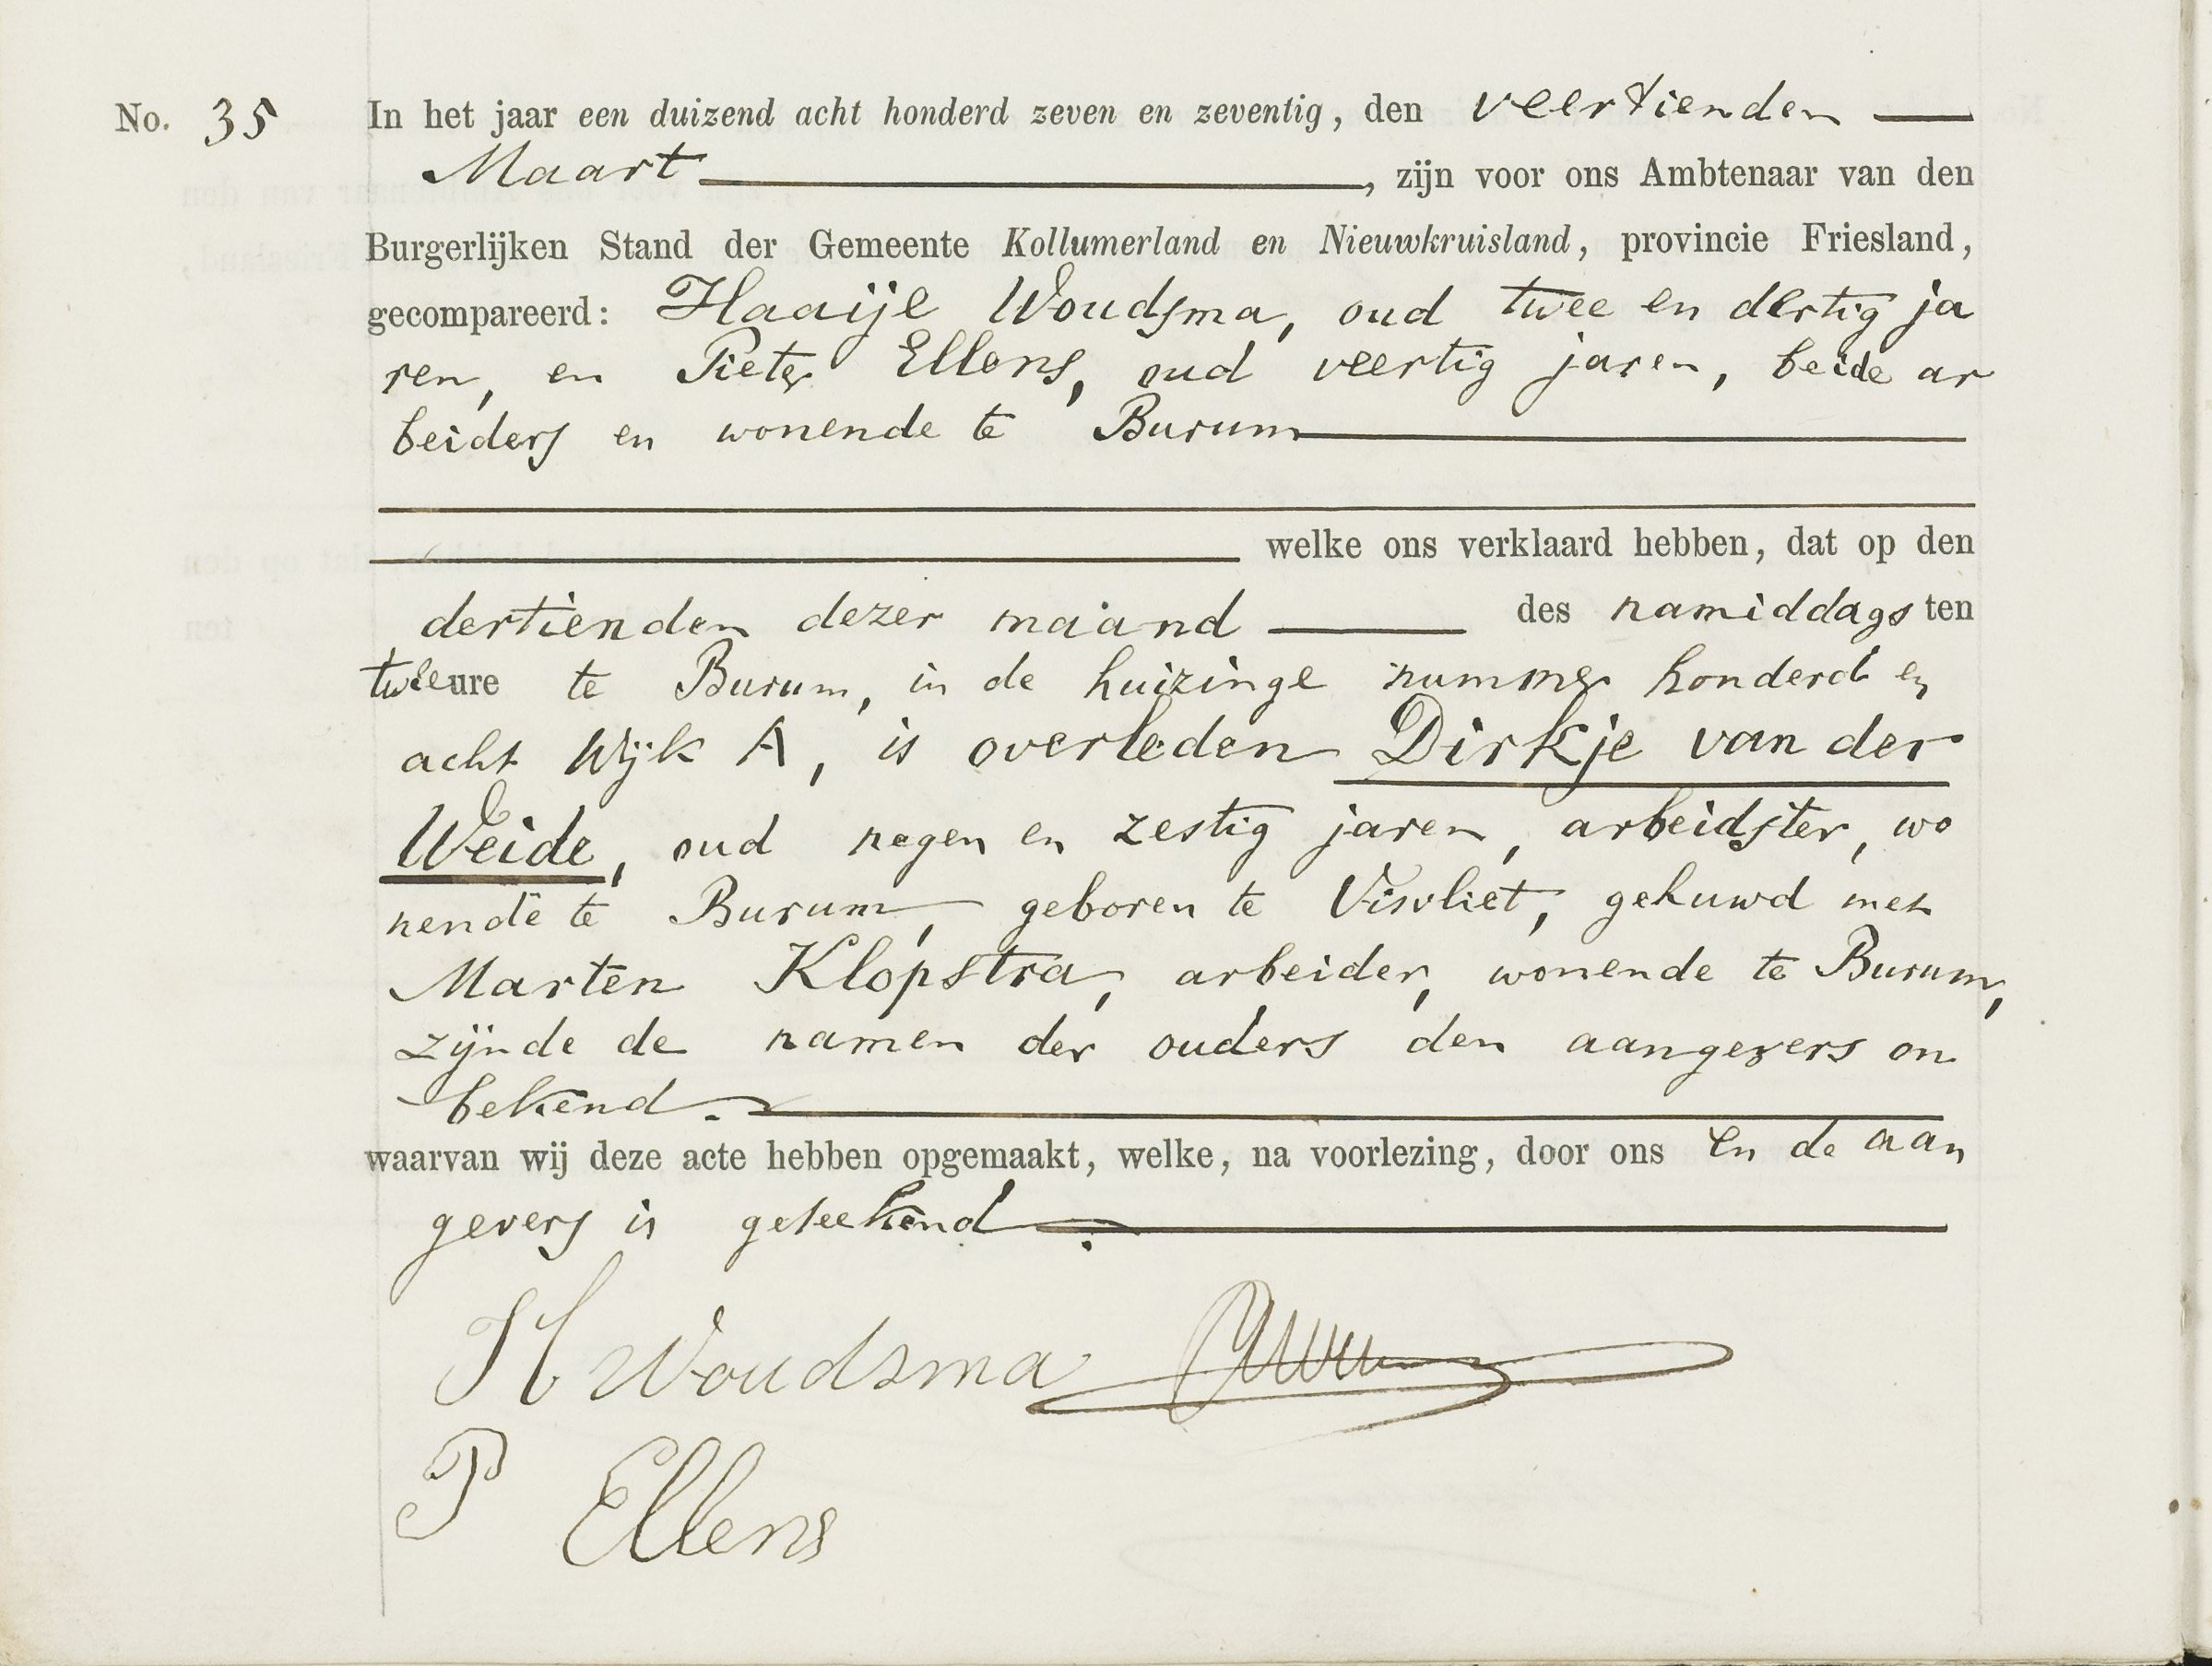 No. 35 In het jaar een duizend acht honderd zeven en zeventig, den veertienden
Maart, zijn voor ons Ambtenaar van den
Burgerlijken Stand der Gemeente Kollumerland en Nieuwkruisland, provincie Friesland,
gecompareerd: Haaije Woudsma, oud twee en dertig ja
ren, en Pieter Ellens, oud veertig jaren, beide ar
beiders en wonende te Burum
welke ons verklaard hebben, dat op den
dertienden dezer maand des namiddags ten
twee ure te Burum, in de huizinge nummer honderd en
acht Wijk A, is overleden Dirkje van der
Weide, oud negen en zestig jaren, arbeidster, wo
nende te Burum, geboren te Visvliet, gehuwd met
Marten Klopstra, arbeider, wonende te Burum,
zijnde de namen der ouders den aangevers on
bekend.
waarvan wij deze acte hebben opgemaakt, welke, na voorlezing, door ons en de aan
gevers is geteekend.
H Woudsma
P Ellens